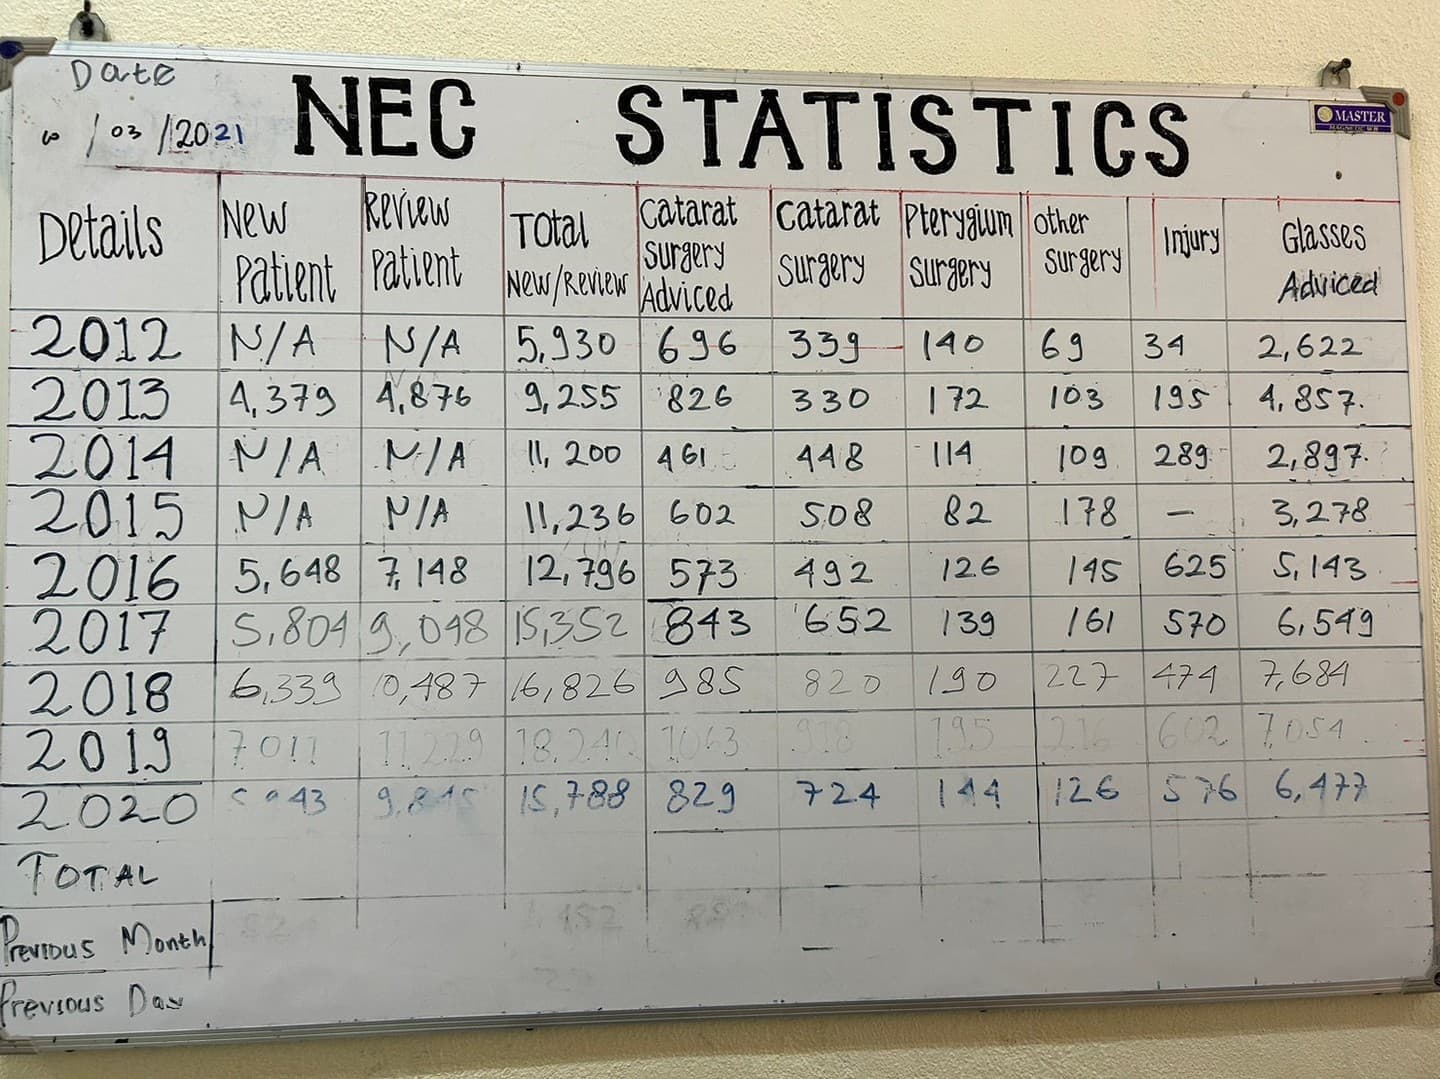 Date
/ 03 / 2021
NEC STATISTICS
MASTER
MAGNETIC WB
Details New Patient Review Patient Total New/Review Catarat Surgery Adviced Catarat Surgery Pterygium Surgery Other Surgery Injury Glasses Adviced
2012 N/A N/A 5,930 696 339 140 69 34 2,622
2013 4,379 4,876 9,255 826 330 172 103 195 4,857.
2014 N/A N/A 11,200 461 448 114 109 289 2,897.
2015 N/A N/A 11,236 602 508 82 178 – 3,278
2016 5,648 7,148 12,796 573 492 126 145 625 5,143
2017 5,804 9,048 15,352 843 652 139 161 570 6,549
2018 6,339 10,487 16,826 985 820 190 227 474 7,684
2019 7011 11,229 18,240 1063 195 216 602 7,054
2020 15,788 829 724 144 126 576 6,477
TOTAL
Previous Month
Previous Day